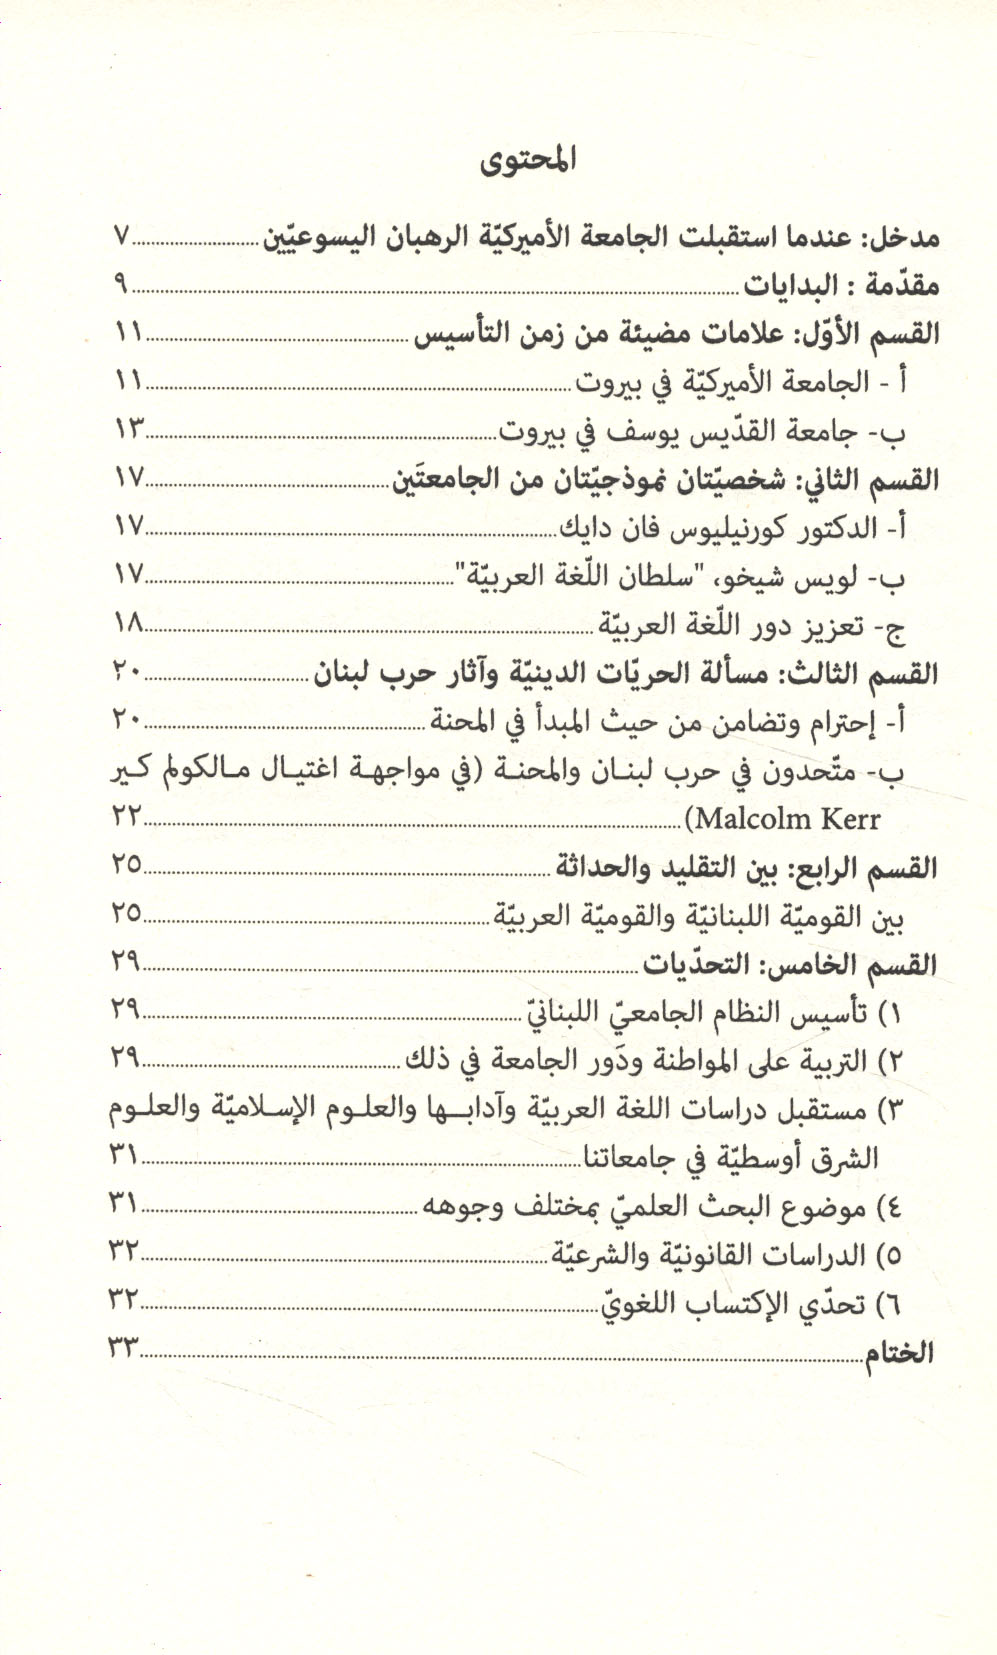 المحتوى
مدخل: عندما استقبلت الجامعة الأميركيّة الرهبان اليسوعيّين ٧
مقدّمة : البدايات ٩
القسم الأوّل: علامات مضيئة من زمن التأسيس ١١
أ - الجامعة الأميركيّة في بيروت ١١
ب- جامعة القدّيس يوسف في بيروت ١٣
القسم الثاني: شخصيّتان نموذجيّتان من الجامعتَين ١٧
أ- الدكتور كورنيليوس فان دايك ١٧
ب- لويس شيخو، "سلطان اللّغة العربيّة" ١٧
ج- تعزيز دور اللّغة العربيّة ١٨
القسم الثالث: مسألة الحريّات الدينيّة وآثار حرب لبنان ٢٠
أ- إحترام وتضامن من حيث المبدأ في المحنة ٢٠
ب- متّحدون في حرب لبنان والمحنة (في مواجهة اغتيال مالكولم كير
Malcolm Kerr) ٢٢
القسم الرابع: بين التقليد والحداثة ٢٥
بين القوميّة اللبنانيّة والقوميّة العربيّة ٢٥
القسم الخامس: التحدّيات ٢٩
١) تأسيس النظام الجامعيّ اللبنانيّ ٢٩
٢) التربية على المواطنة ودَور الجامعة في ذلك ٢٩
٣) مستقبل دراسات اللغة العربيّة وآدابها والعلوم الإسلاميّة والعلوم
الشرق أوسطيّة في جامعاتنا ٣١
٤) موضوع البحث العلميّ بمختلف وجوهه ٣١
٥) الدراسات القانونيّة والشرعيّة ٣٢
٦) تحدّي الإكتساب اللغويّ ٣٢
الختام ٣٣